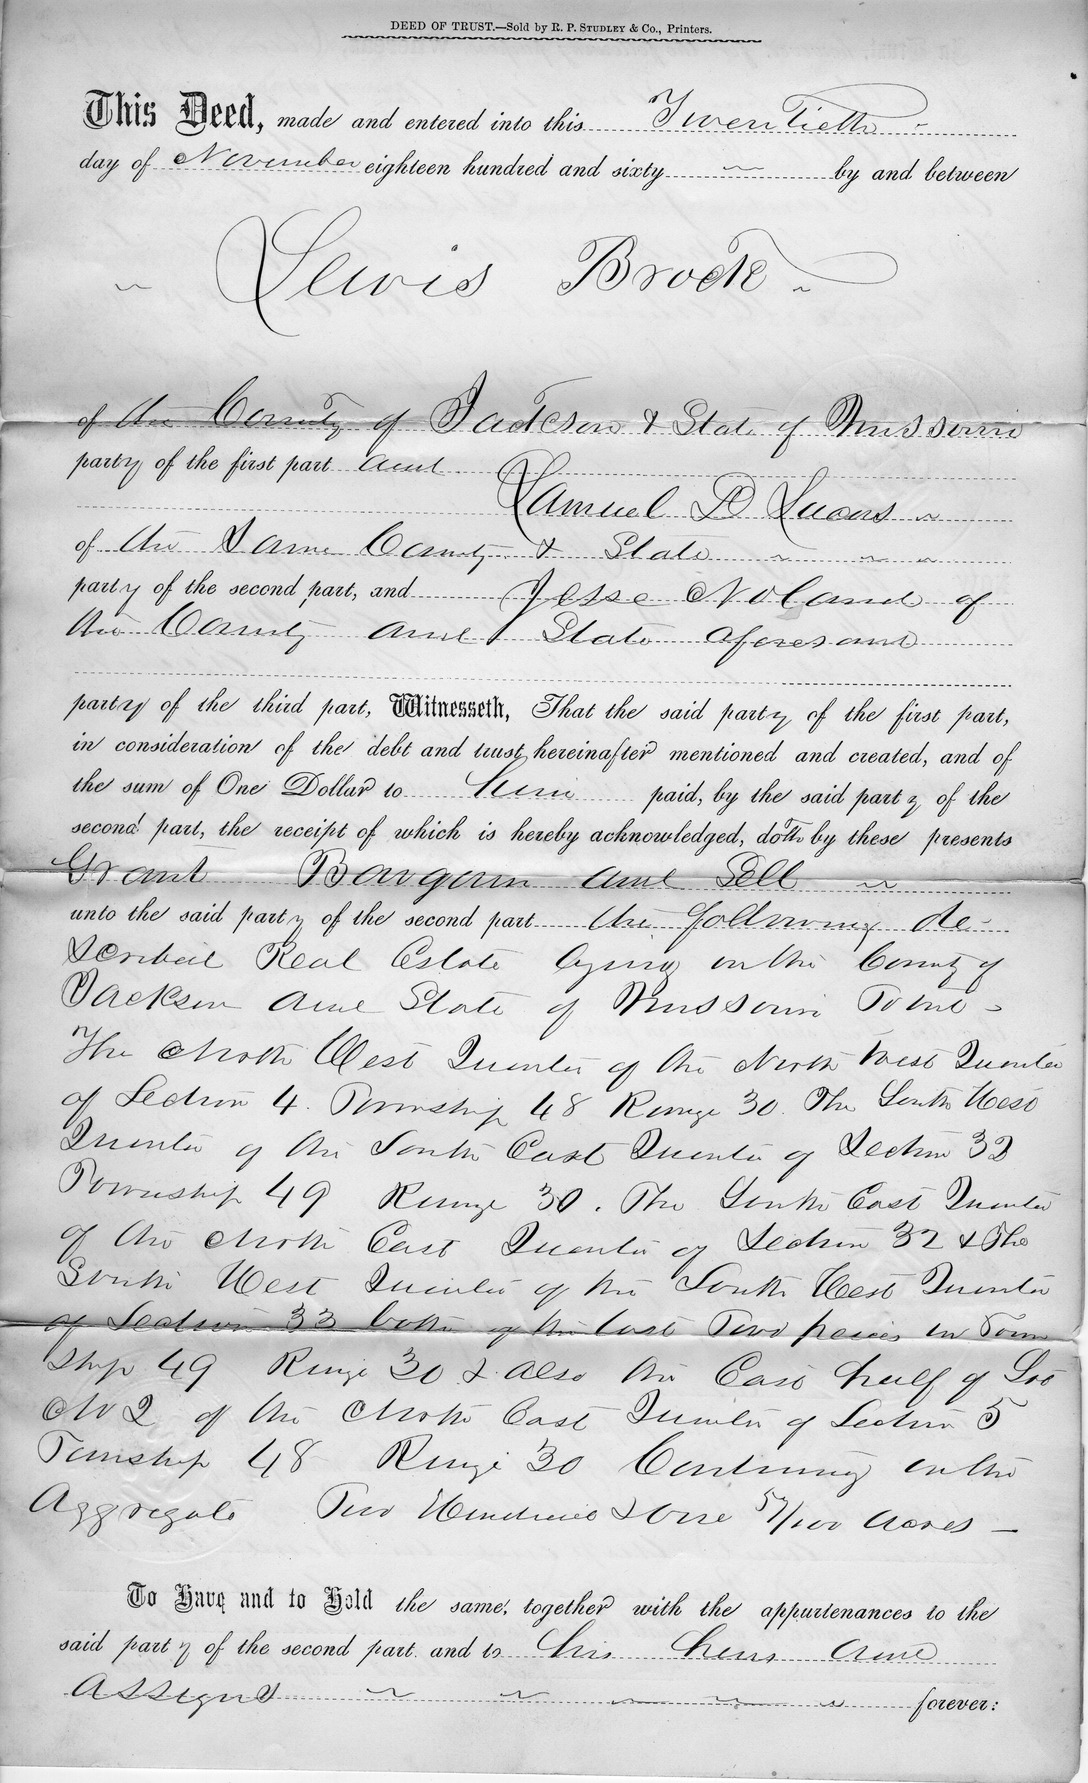 DEED OF TRUST.—Sold by R. P. STUDLEY & Co., Printers.
This Deed, made and entered into this Twentieth
day of November eighteen hundred and sixty by and between
Lewis Brock
of the County of Jackson & State of Missouri
party of the first part and
Samuel D Lucas
of the Same County & State
party of the second part, and Jesse Noland of
the County and State aforesaid
party of the third part, Witnesseth, That the said party of the first part,
in consideration of the debt and trust hereinafter mentioned and created, and of
the sum of One Dollar to him paid, by the said party of the
second part, the receipt of which is hereby acknowledged, doth by these presents
Grant Bargain and Sell
unto the said party of the second part the following de-
scribed Real Estate lying in the County of
Jackson and State of Missouri Towit -
The North West Quarter of the North West Quarter
of Section 4. Township 48 Range 30. The South West
Quarter of the South East Quarter of Section 32
Township 49 Range 30. The South East Quarter
of the North East Quarter of Section 32 & The
South West Quarter of the South West Quarter
of Section 33 both of the last Two peices in Town
ship 49 Range 30 & also the East half of Lot
No 2 of the North East Quarter of Section 5
Township 48 Range 30 Containing in the
Aggregate Two Hundred & One 57/100 Acres —
To Have and to Hold the same, together with the appurtenances to the
said party of the second part. and to his heirs and
Assigns forever: